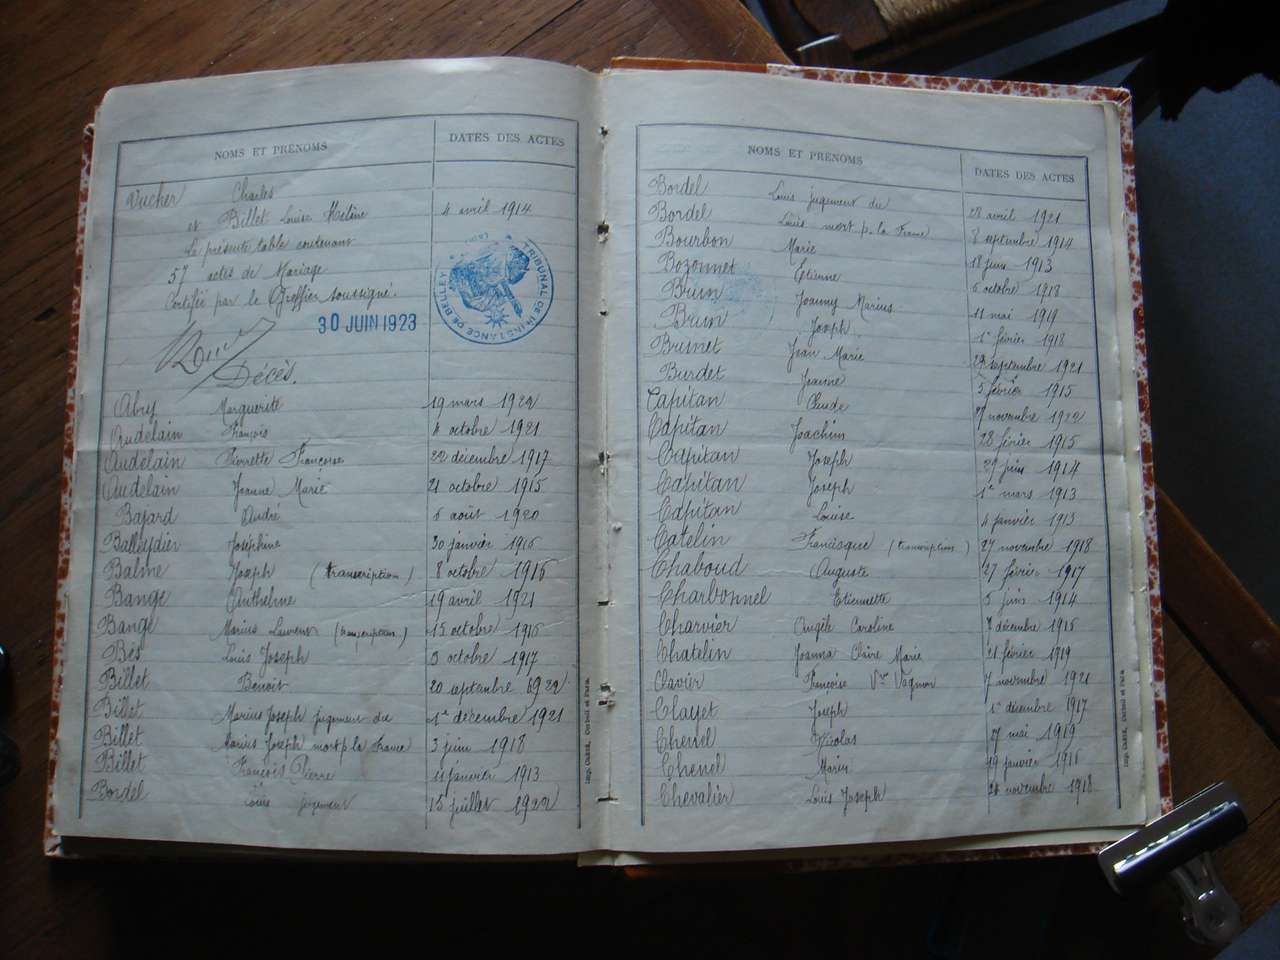 NOMS ET PRÉNOMS DATES DES ACTES
Vucher Charles
et Billet Louise Hélène 4 avril 1914
La présente table contenant
57 actes de Mariage
Certifiée par le Greffier soussigné.
30 JUIN 1923
TRIBUNAL DE 1re INSTANCE DE BELLEY
Décès.
Abry Marguerite 19 mars 1922
Audelain François 4 octobre 1921
Audelain Pierrette Françoise 22 décembre 1917
Audelain Jeanne Marie 21 octobre 1915
Bajard André 6 août 1920
Balleydier Joséphine 30 janvier 1916
Balme Joseph (transcription) 8 octobre 1916
Bange Anthelme 19 avril 1921
Bange Marius Laurent (transcription) 15 octobre 1916
Bés Louis Joseph 3 octobre 1917
Billet Benoit 20 septembre 1922
Billet Marius Joseph jugement du 1er décembre 1921
Billet Marius Joseph mort p. la France 3 juin 1918
Billet François Pierre 11 janvier 1913
Bordel Louis jugement 15 juillet 1922
Imp. Chaix, Corbeil et Paris.
NOMS ET PRÉNOMS DATES DES ACTES
Bordel Louis jugement du 28 avril 1921
Bordel Louis mort p. la France 8 septembre 1914
Bourbon Marie 18 juin 1913
Bozonnet Etienne 6 octobre 1918
Brun Joanny Marius 11 mai 1919
Brun Joseph 1er février 1918
Brunet Jean Marie 29 septembre 1921
Burdet Jeanne 5 février 1915
Capitan Claude 27 novembre 1922
Capitan Joachim 28 février 1915
Capitan Joseph 29 juin 1914
Capitan Joseph 1er mars 1913
Capitan Louise 4 janvier 1913
Catelin Francisque (transcription) 27 novembre 1918
Chaboud Auguste 27 février 1917
Charbonnel Etiennette 5 juin 1914
Charvier Angèle Caroline 7 décembre 1916
Chatelin Joanna Claire Marie 21 février 1919
Clavier Françoise Vve Vagnon 7 novembre 1921
Clayet Joseph 1er décembre 1917
Chenel Nicolas 27 mai 1919
Chenel Marin 19 janvier 1916
Chevalier Louis Joseph 28 novembre 1918